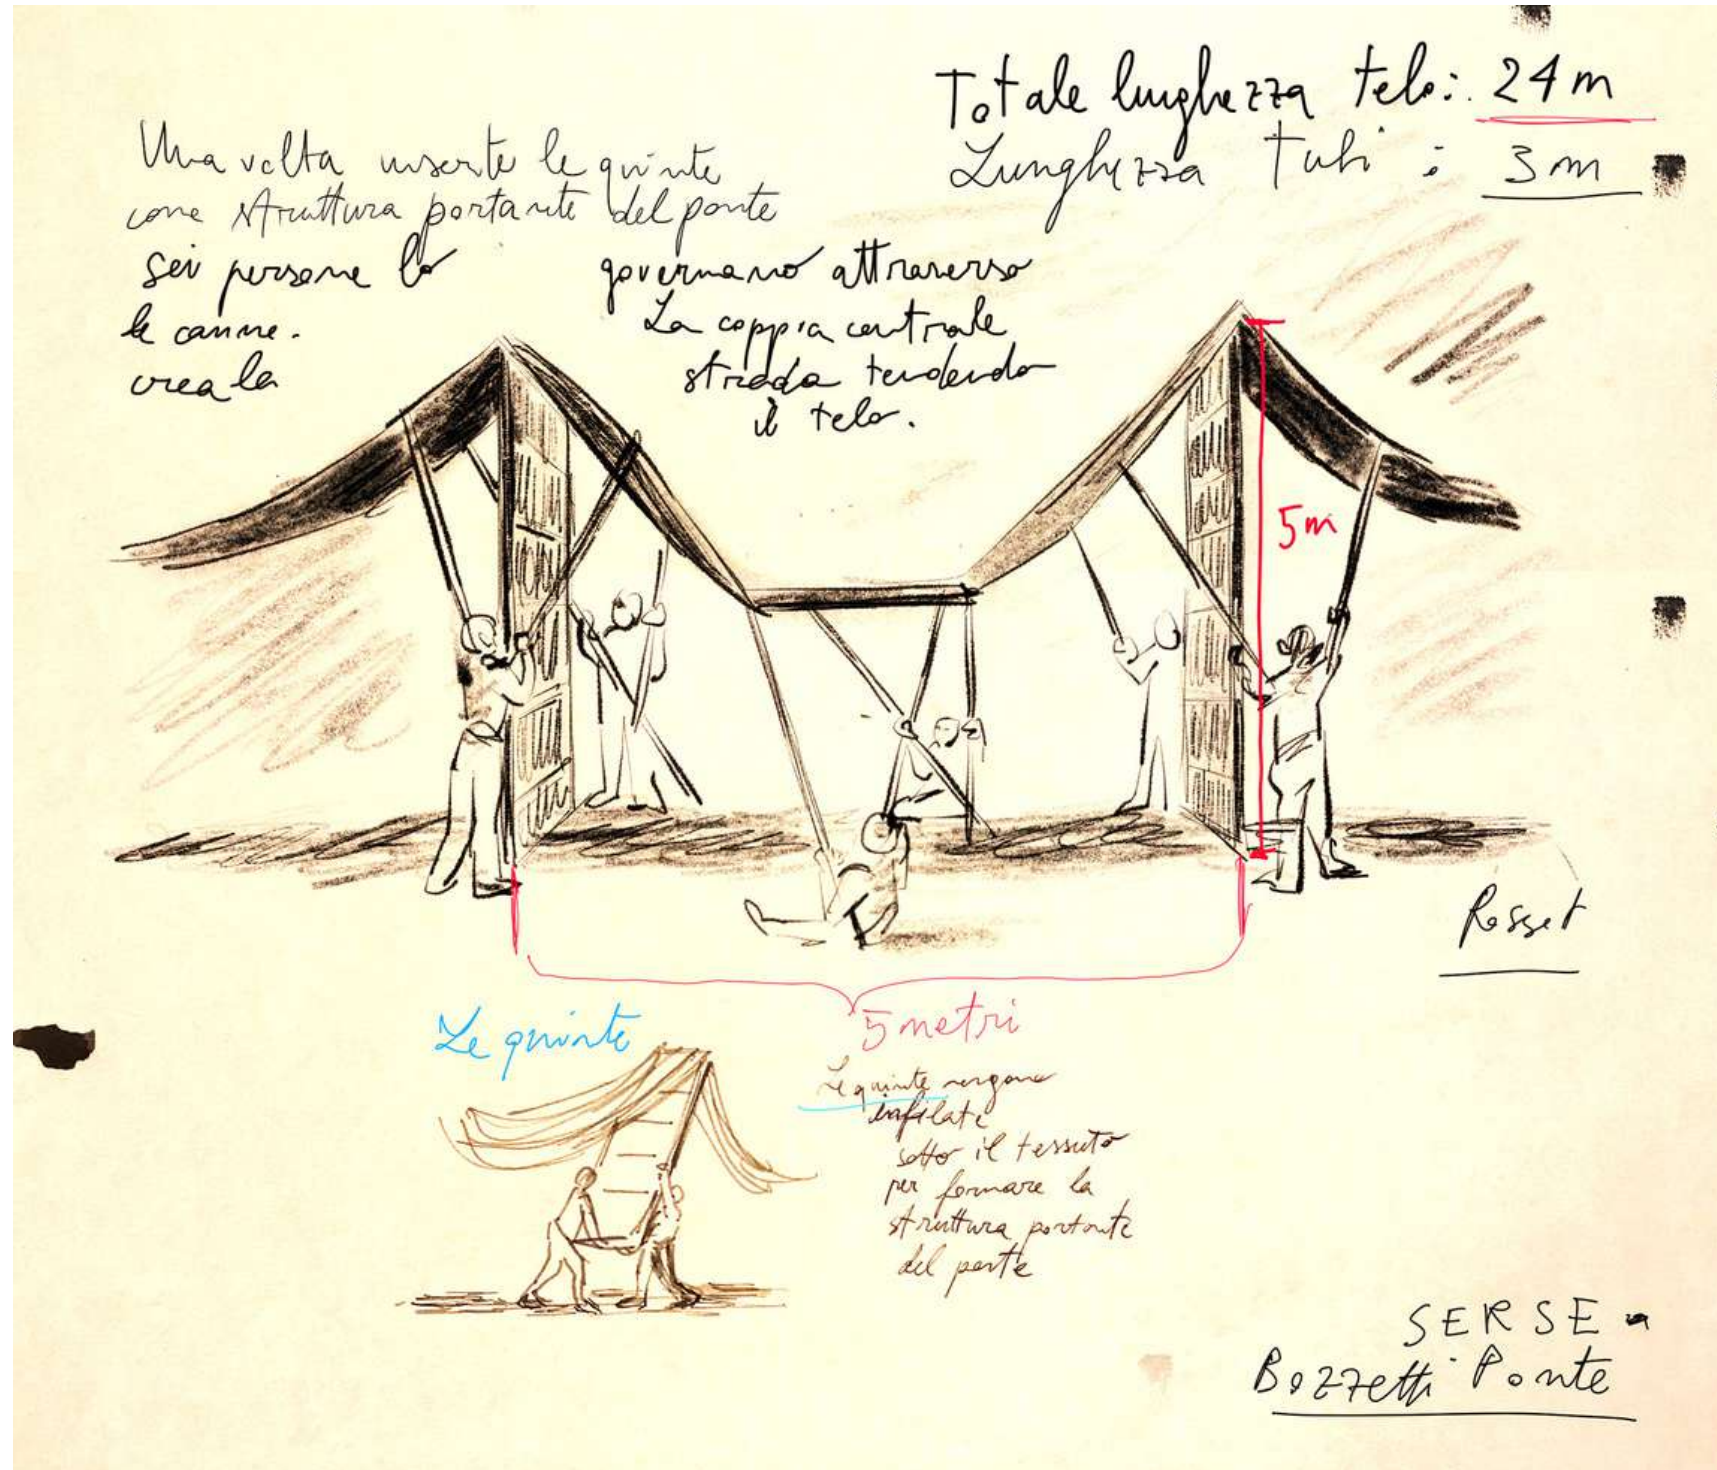 Totale lunghezza telo: 24 m
Lunghezza tubi : 3 m
Una volta inserite le quinte
come struttura portante del ponte
sei persone lo governano attraverso
le canne. La coppia centrale
crea la strada tendendo
il telo.
5m
5 metri
Le quinte
Le quinte vengono
infilate
sotto il tessuto
per formare la
struttura portante
del ponte
Rosset
SERSE
Bozzetti Ponte